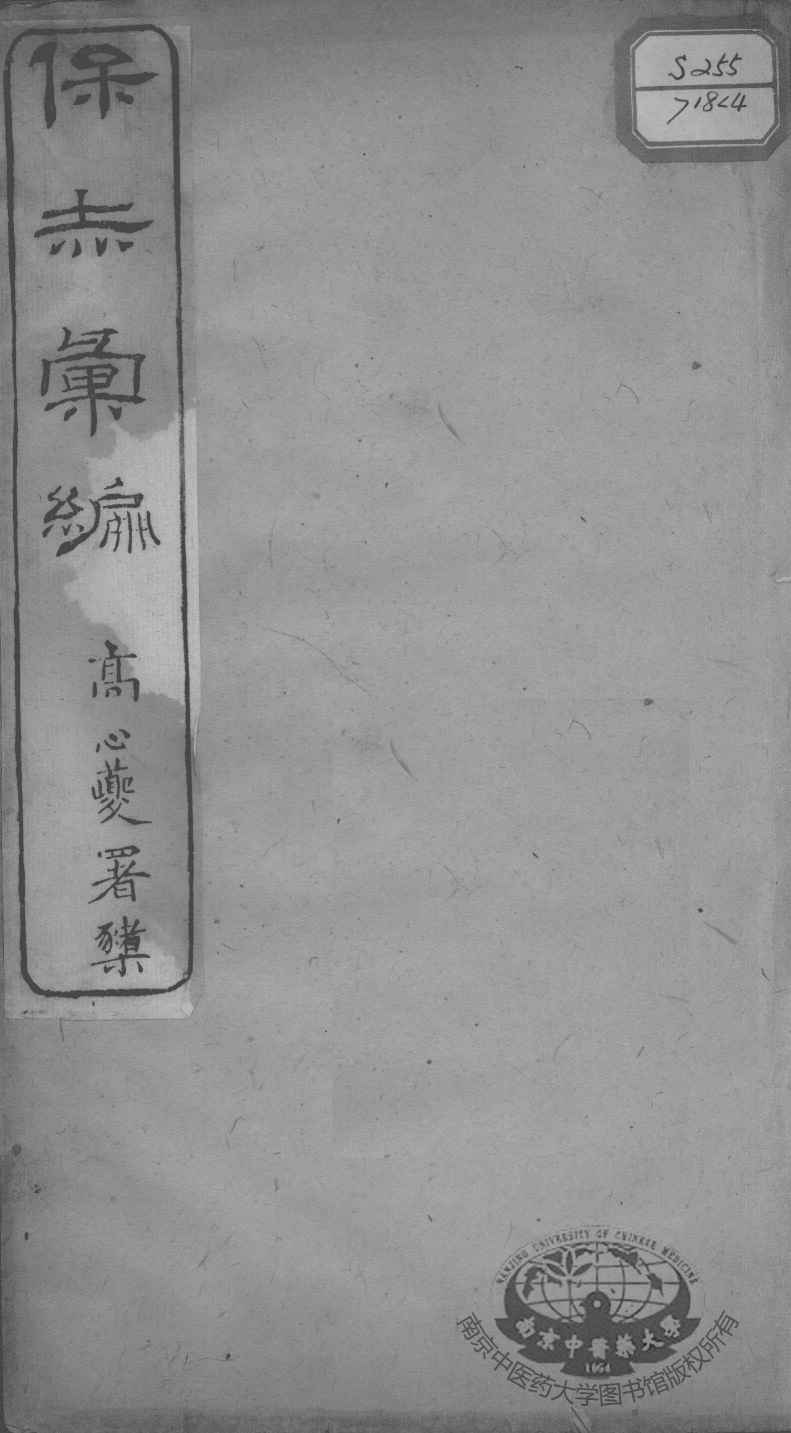 保赤彙編
高心夔署檢
S255
NANJING UNIVERSITY OF CHINESE MEDICINE
南京中醫藥大學
1954
南京中医药大学图书馆版权所有